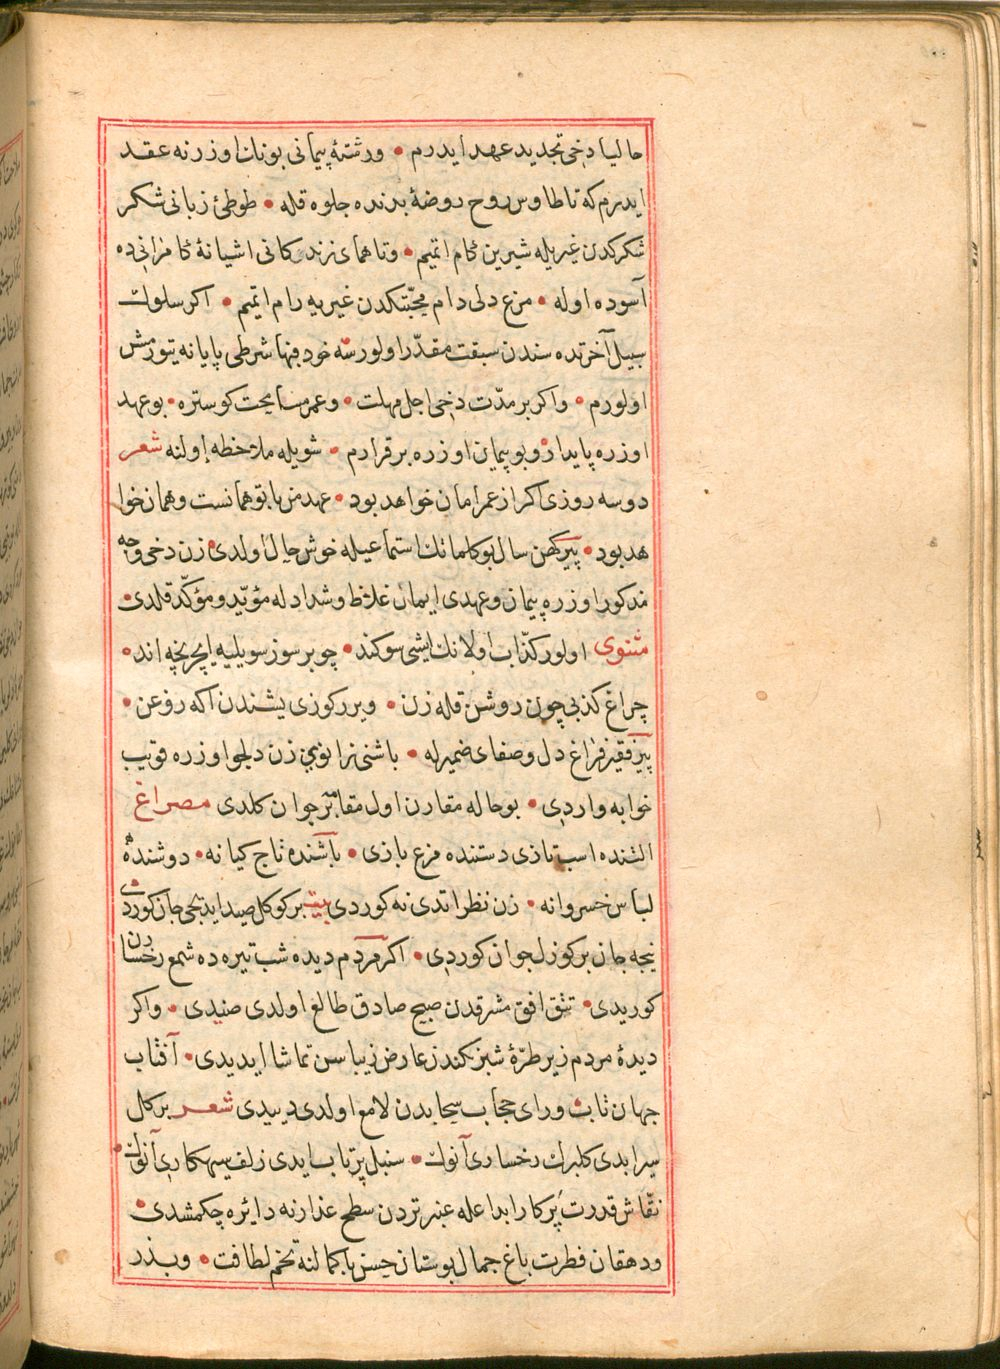 حالیا دخی تجدید عهد ایدرم • ورشتهٔ پیمانی بونك اوزرنه عقد
ایدرم که تا طاوس روح روضهٔ بدنده جلوه قله • طوطئ زبانی شکر
شکرکدن غیریله شیرین کام اتمیم • وتا همای زندکانی اشیانهٔ کامرانیده
آسوده اوله • مرغ دلی دام محبّتکدن غیریه رام اتمیم • اکر سلوك
سبیل آخرتده سندن سبقت مقدّر اولورسه خود فبها شرطی پایانه یتورمش
اولورم • واکر بر مدّت دخی اجل مهلت • وعمر مسامحت کوستره • بو عهد
اوزره پایدار وبو پیمان اوزره برقرارم • شویله ملاحظه اولنه شعر
دوسه روزی اکر از عمر امان خواهد بود • عهد من با تو همانست وهمان خوا
هد بود • پیر کهن سال بو کلماتك استماعیله خوش حال اولدی • زن دخی وجه
مذکور اوزره پیمان وعهدی ایمان غلاظ وشداد له مؤیّد ومؤکّد قلدی •
مثنوی اولور کذّاب اولانك ایشی سوکند • چو بر سوز سویلیه ایچر نچه اند •
چراغ کذبی چون روشن قله زن • ویرر کوزی یشندن اکه روغن •
پیر فقیر فراغ دل وصفای ضمیرله • باشنی زانوی زن دلجو اوزره قویب
خوابه واردی • بو حاله مقارن اول مقامه بر جوان کلدی مصراع
التنده اسب تازی دستنده مرغ بازی • باشنده تاج کیانه • دوشنده
لباس خسروانه • زن نظر اتدی نه کوردی بیت بر کوکل صید ایدیجی جان کوردی
نیجه جان بر کوزل جوان کوردی • اکر مردم دیده شب تیره ده شمع رخسارن
کوریدی • تتق افق مشرقدن صبح صادق طالع اولدی صنیدی • واکر
دیدهٔ مردم زیر طرّهٔ شبرنکندن عارض زیباسن تماشا ایدیدی • آفتاب
جهان تاب ورای حجاب سحابدن لامع اولدی دییدی شعر بر کل
سیرابدی کلبرك رخساری آنوك • سنبل پرتاب ایدی زلف سیهکاری آنوك •
نقّاش قدرت پرکار ابداعله عنبر تردن سطح عذارنه دایره چکمشدی •
ودهقان فطرت باغ جمال بوستان حسن باکمالنه تخم لطافت • وبذر